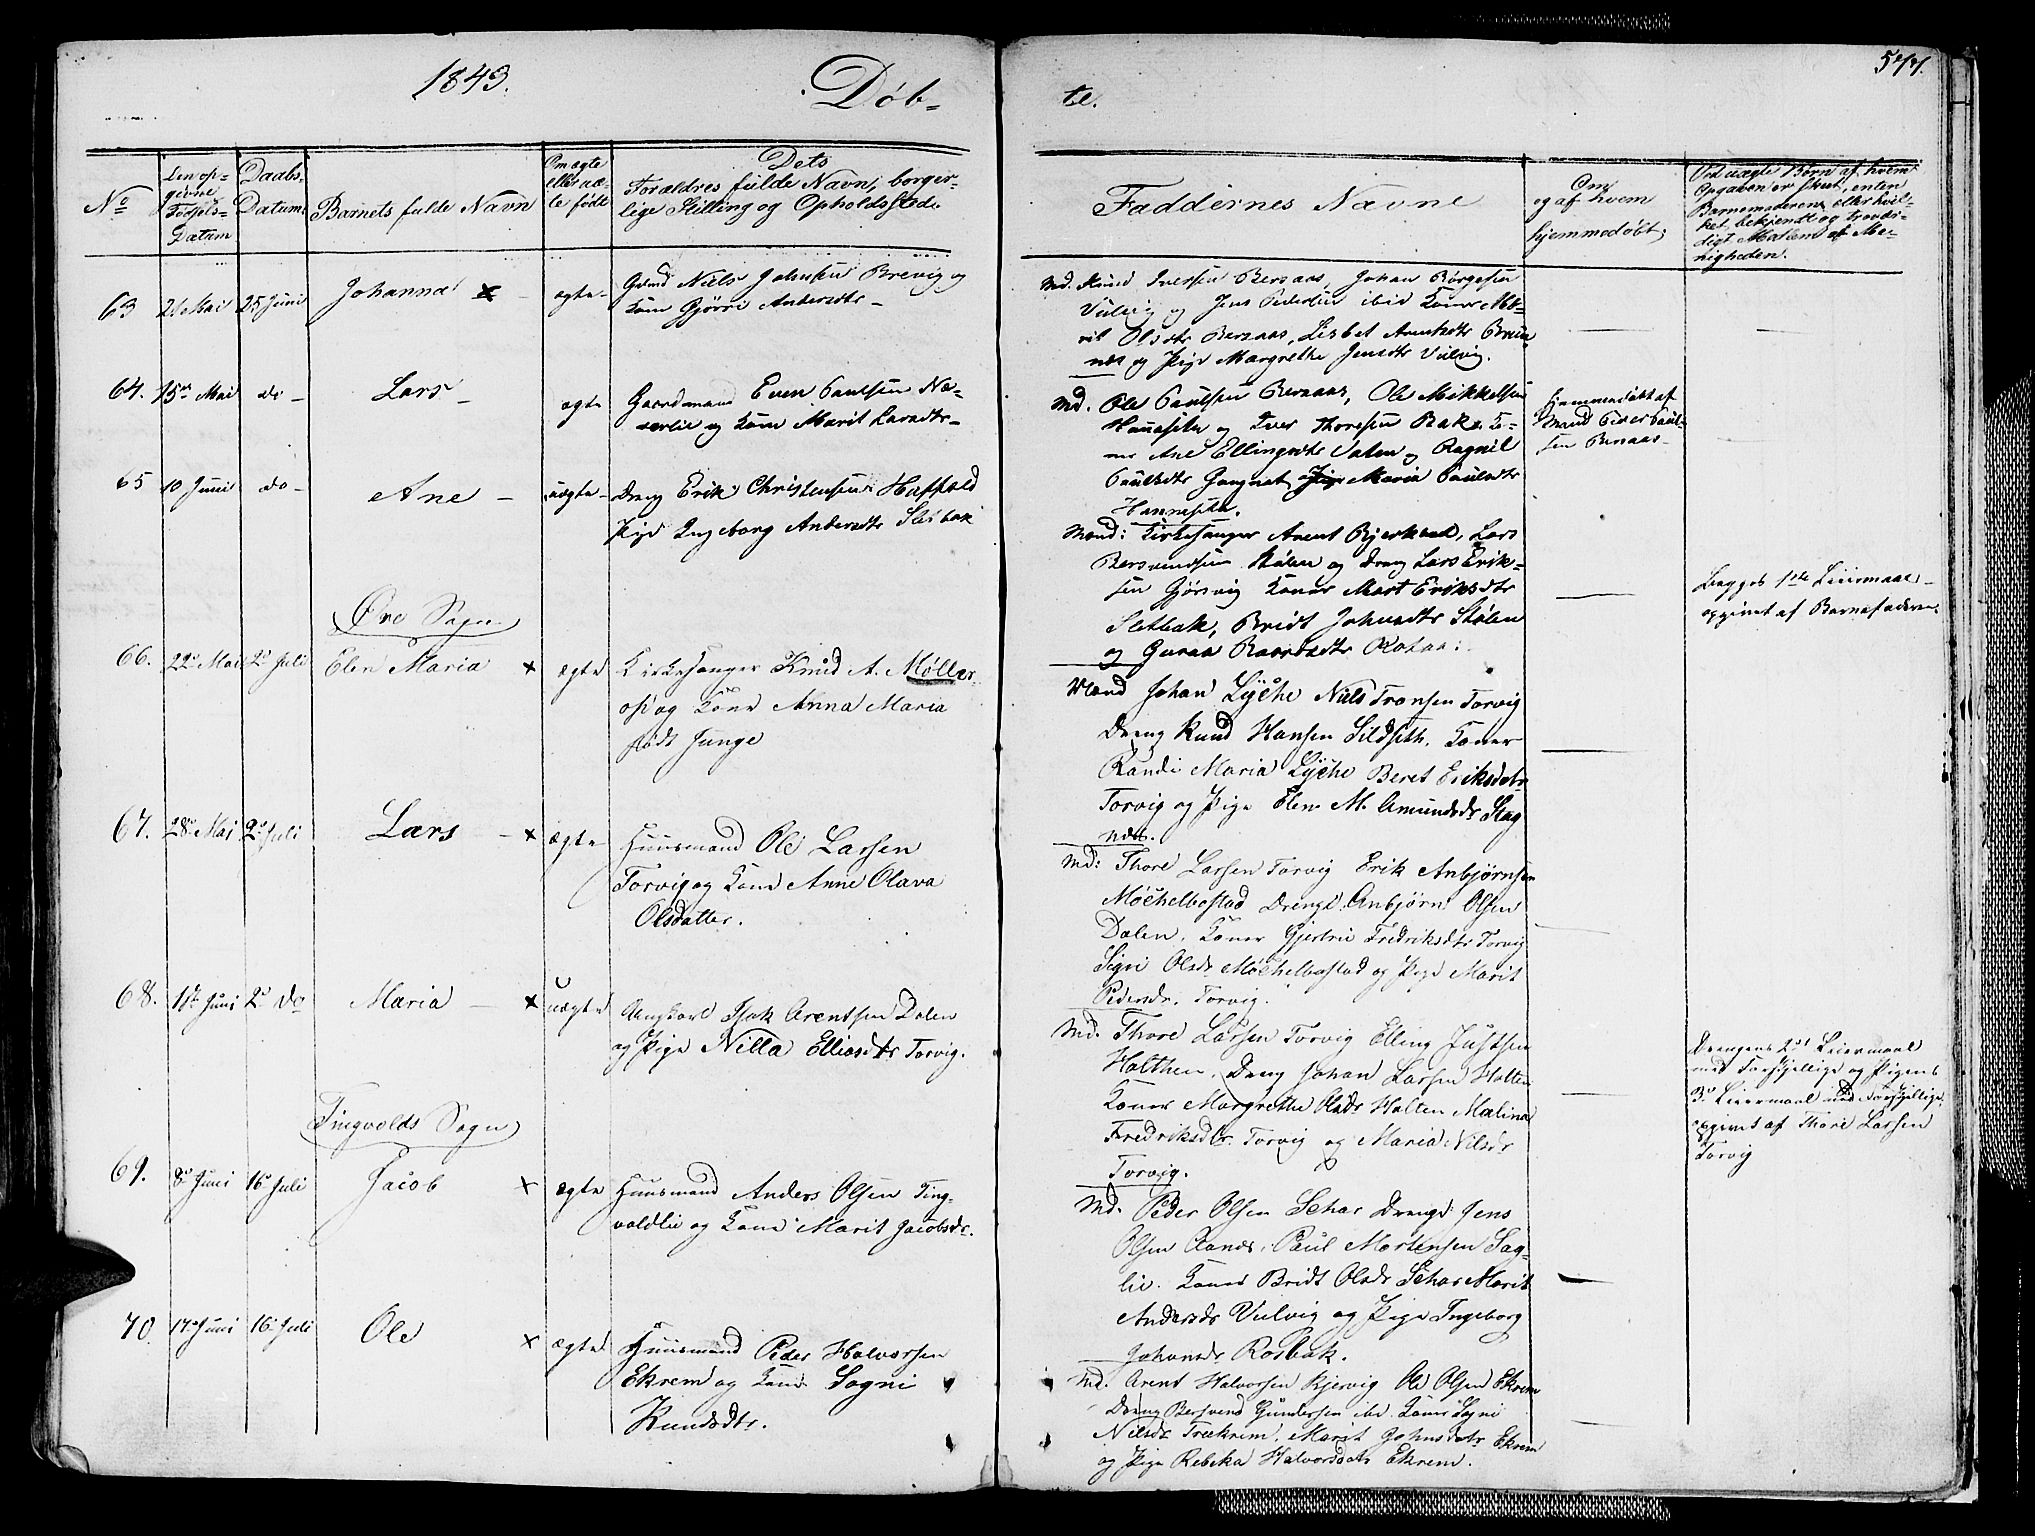 1843.
Døb-
te.
577.
No
Den op-
givne
Fødsels-
Datum
Daabs-
Datum
Barnets fulde Navn
Om ægte
eller uæ-
te født
Dets
Forældres fulde Navn, borger-
lige Stilling og Opholdssted.
Faddernes Navne
Om
og af hvem
hjemmedøbt;
Ved uægte Børn af hvem
Opgaven er skeet, enten
Barnemoderen eller hvil-
ket bekjendt og troværi-
digt Medlem af Me-
nigheden.
63
21 Mai
25 Juni
Johanna
ægte
Gmd Niels Johnsen Brevig og
Kone Gjørre Andersdtr
Md. Knud Iversen Bersaas, Johan Børgesen
Vulvig og Jens Pedersen ibid Koner Ma-
rit Olsdtr Bersaas, Lisbet Arentsdtr
og Pige Margrethe Jensdtr Vulvig.
64.
15de Mai
do
Lars
ægte
Gaardmand Even Paulsen Næ-
verlie og Kone Marit Larsdtr
Md. Ole Paulsen Bersaas, Ole Mikkelsen
Hannasæter og Iver Thoresen Bake Ko-
ner Ane Ellingsdtr Vaten og Ragnil
Paulsdtr Gangnat, Pige Maria Paulsdtr
Hannasæter.
hjemmedøbt af
Mand Peder Paul-
sen Bersaas
65
10 Juni
do
Ane
uægte
Dreng Erik Christensen Hafsold
Pige Ingeborg Andersdtr Sletbak
Mænd: Kirkesanger Arent Bjerkevold, Lars
Bersvendsen Stølen og Dreng Lars Erik-
sen Gjørvig Koner Mart Eriksdtr
Sletbak, Bridt Johnsdtr Stølen
og Guraa Baardsdtr Rotaa:
Begges 1ste Leiermaal
opgivet af Barnefaderen.
Øre Sogn
66.
22de Mai
2de Juli
Elen Maria
ægte
Kirkesanger Knud A. Møller
og Kone Anna Maria
født Junge
Mænd Johan Lyche Niels Tronsen Torvig
Dreng Knud Hansen Sildseth. Koner
Randi Maria Lyche Beret Eriksdatr
Torvig og Pige Elen M. Amundsdr Stag
næs.
67.
28de Mai
2de Juli
Lars
ægte
Huusmand Ole Larsen
Torvig og Kone Anne Olava
Olsdatter.
Md: Thore Larsen Torvig Erik Anbjørnsen
Møchelbostad Drenge Anbjørn Olsen
Dalen. Koner Gjertrie Fredriksdtr Torvig
Signi Olsdr Møchelbostad og Pige Marit
Pedersdr. Torvig.
68.
11te Juni
2de do
Maria
uægte
Ungkarl Isak Arentsen Dalen
og Pige Nilla Elliasdtr Torvig.
Md. Thore Larsen Torvig Elling Justsen
Holthen. Dreng Johan Larsen Holten
Koner Margrethe Olsdr Holten Malina
Fredriksdtr. Torvig og Maria Nilsdr
Torvig.
Drengens 2det Leiermaal
med Forskjellige og Pigens
3die Leiermaal med Forskjellige.
opgivet af Thore Larsen
Torvig
Tingvolds Sogn
69.
8de Juni
16de Juli
Jacob
ægte
Huusmand Anders Olsen Ting-
voldlie og Kone Marit Jacobsdr.
Md. Peder Olsen Schar Drenge Jens
Olsen Aanes, Paul Mortensen Sag-
lie. Koner Bridt Olsdr Schar Marit
Andersdr Vulvig og Pige Ingeborg
Johansdr Rosbak.
70.
17de Juni
16de Juli
Ole
ægte
Huusmand Peder Halvorsen
Ekrem og Kone Sogni
Knudsdtr.
Md. Arent Halvorsen Bjervig Ole Olsen Ekrem
Dreng Bersvend Gundersen ibd. Koner Sogni
Nilsdr Treekrem, Marit Johnsdatr Ekrem
og Pige Rebeka Halvorsdatr Ekrem.